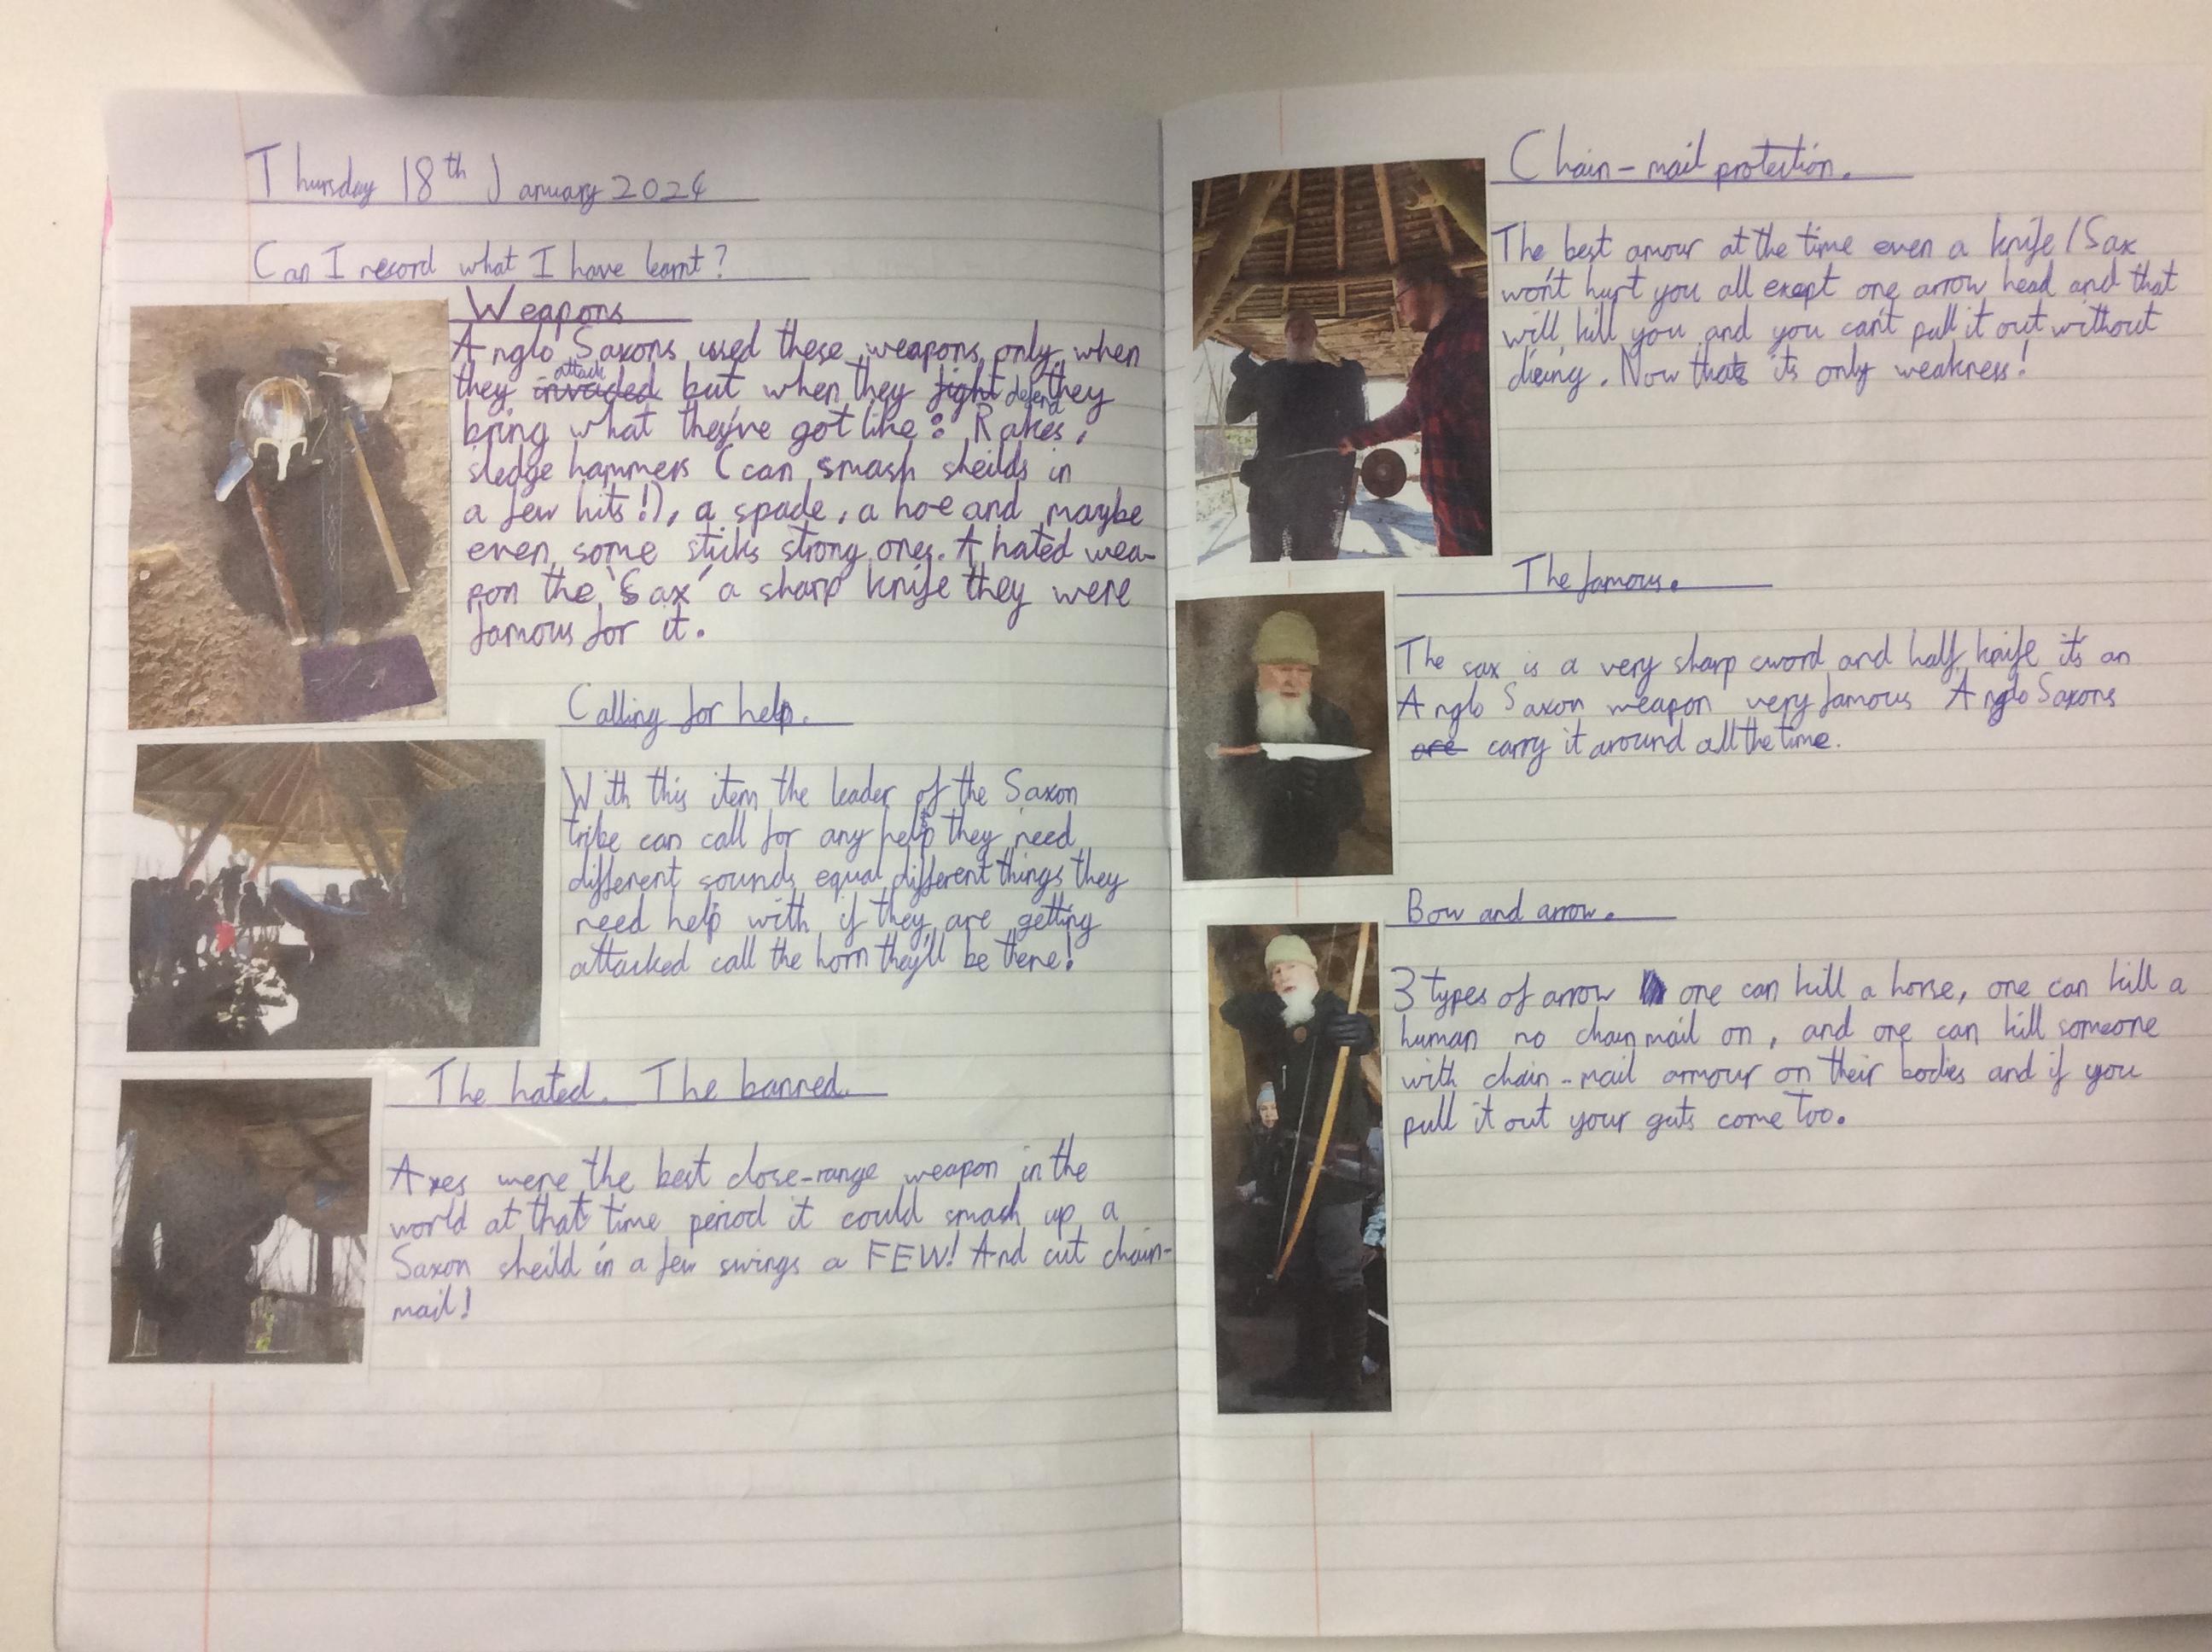 Thursday 18th January 2024
Can I record what I have learnt?
Weapons
Anglo Saxons used these weapons only when
they invaded attack but when they fight defend they
bring what they've got like: Rakes,
sledge hammers (can smash sheilds in
a few hits!), a spade, a hoe and maybe
even some sticks strong ones. A hated wea-
pon the 'Sax' a sharp knife they were
famous for it.
Calling for help.
With this item the leader of the Saxon
tribe can call for any help they need
different sounds equal different things they
need help with if they are getting
attacked call the horn they'll be there!
The hated. The banned.
Axes were the best close-range weapon in the
world at that time period it could smash up a
Saxon sheild in a few swings a FEW! And cut chain-
mail!
Chain-mail protection.
The best amour at the time even a knife/Sax
won't hurt you all exept one arrow head and that
will kill you and you can't pull it out without
dieing. Now thats its only weakness!
The famous.
The sax is a very sharp sword and half knife it's an
Anglo Saxon weapon very famous Anglo Saxons
are carry it around all the time.
Bow and arrow.
3 types of arrow one can kill a horse, one can kill a
human no chainmail on, and one can kill someone
with chain-mail armour on their bodies and if you
pull it out your guts come too.